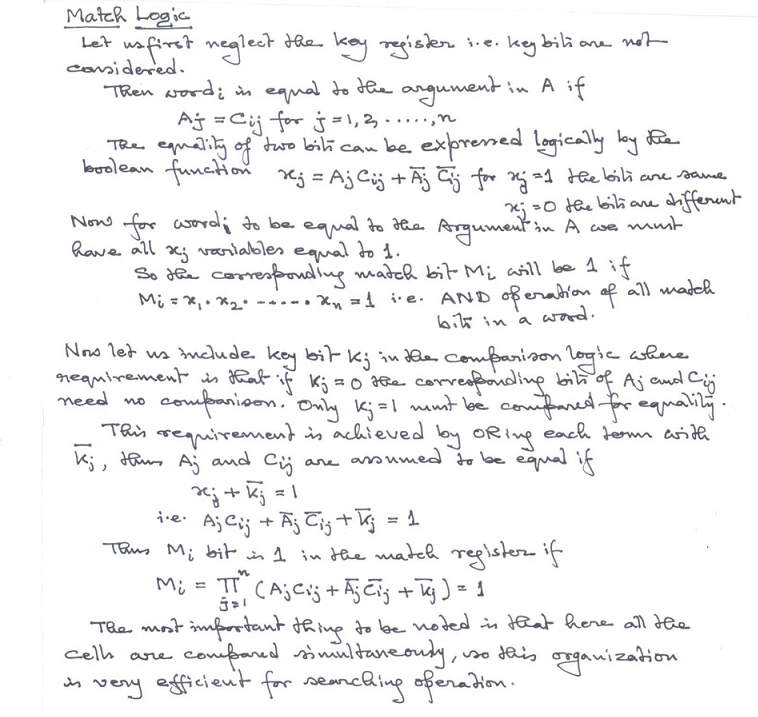 Match Logic
Let us first neglect the key register i.e. key bits are not
considered.
Then word i is equal to the argument in A if
Aj = Cij for j = 1, 2, ....., n
The equality of two bits can be expressed logically by the
boolean function xj = Aj Cij + A̅j C̅ij for xj = 1 the bits are same
xj = 0 the bits are different
Now for word i to be equal to the Argument in A we must
have all xj variables equal to 1.
So the corresponding match bit Mi will be 1 if
Mi = x1 . x2 . ------ . xn = 1 i.e. AND operation of all match
bits in a word.
Now let us include key bit Kj in the comparison logic where
requirement is that if Kj = 0 the corresponding bits of Aj and Cij
need no comparison. Only Kj = 1 must be compared for equality.
This requirement is achieved by ORing each term with
K̅j, thus Aj and Cij are assumed to be equal if
xj + K̅j = 1
i.e. Aj Cij + A̅j C̅ij + K̅j = 1
Thus Mi bit is 1 in the match register if
Mi = ∏ⁿj=1 (Aj Cij + A̅j C̅ij + K̅j) = 1
The most important thing to be noted is that here all the
cells are compared simultaneously, so this organization
is very efficient for searching operation.